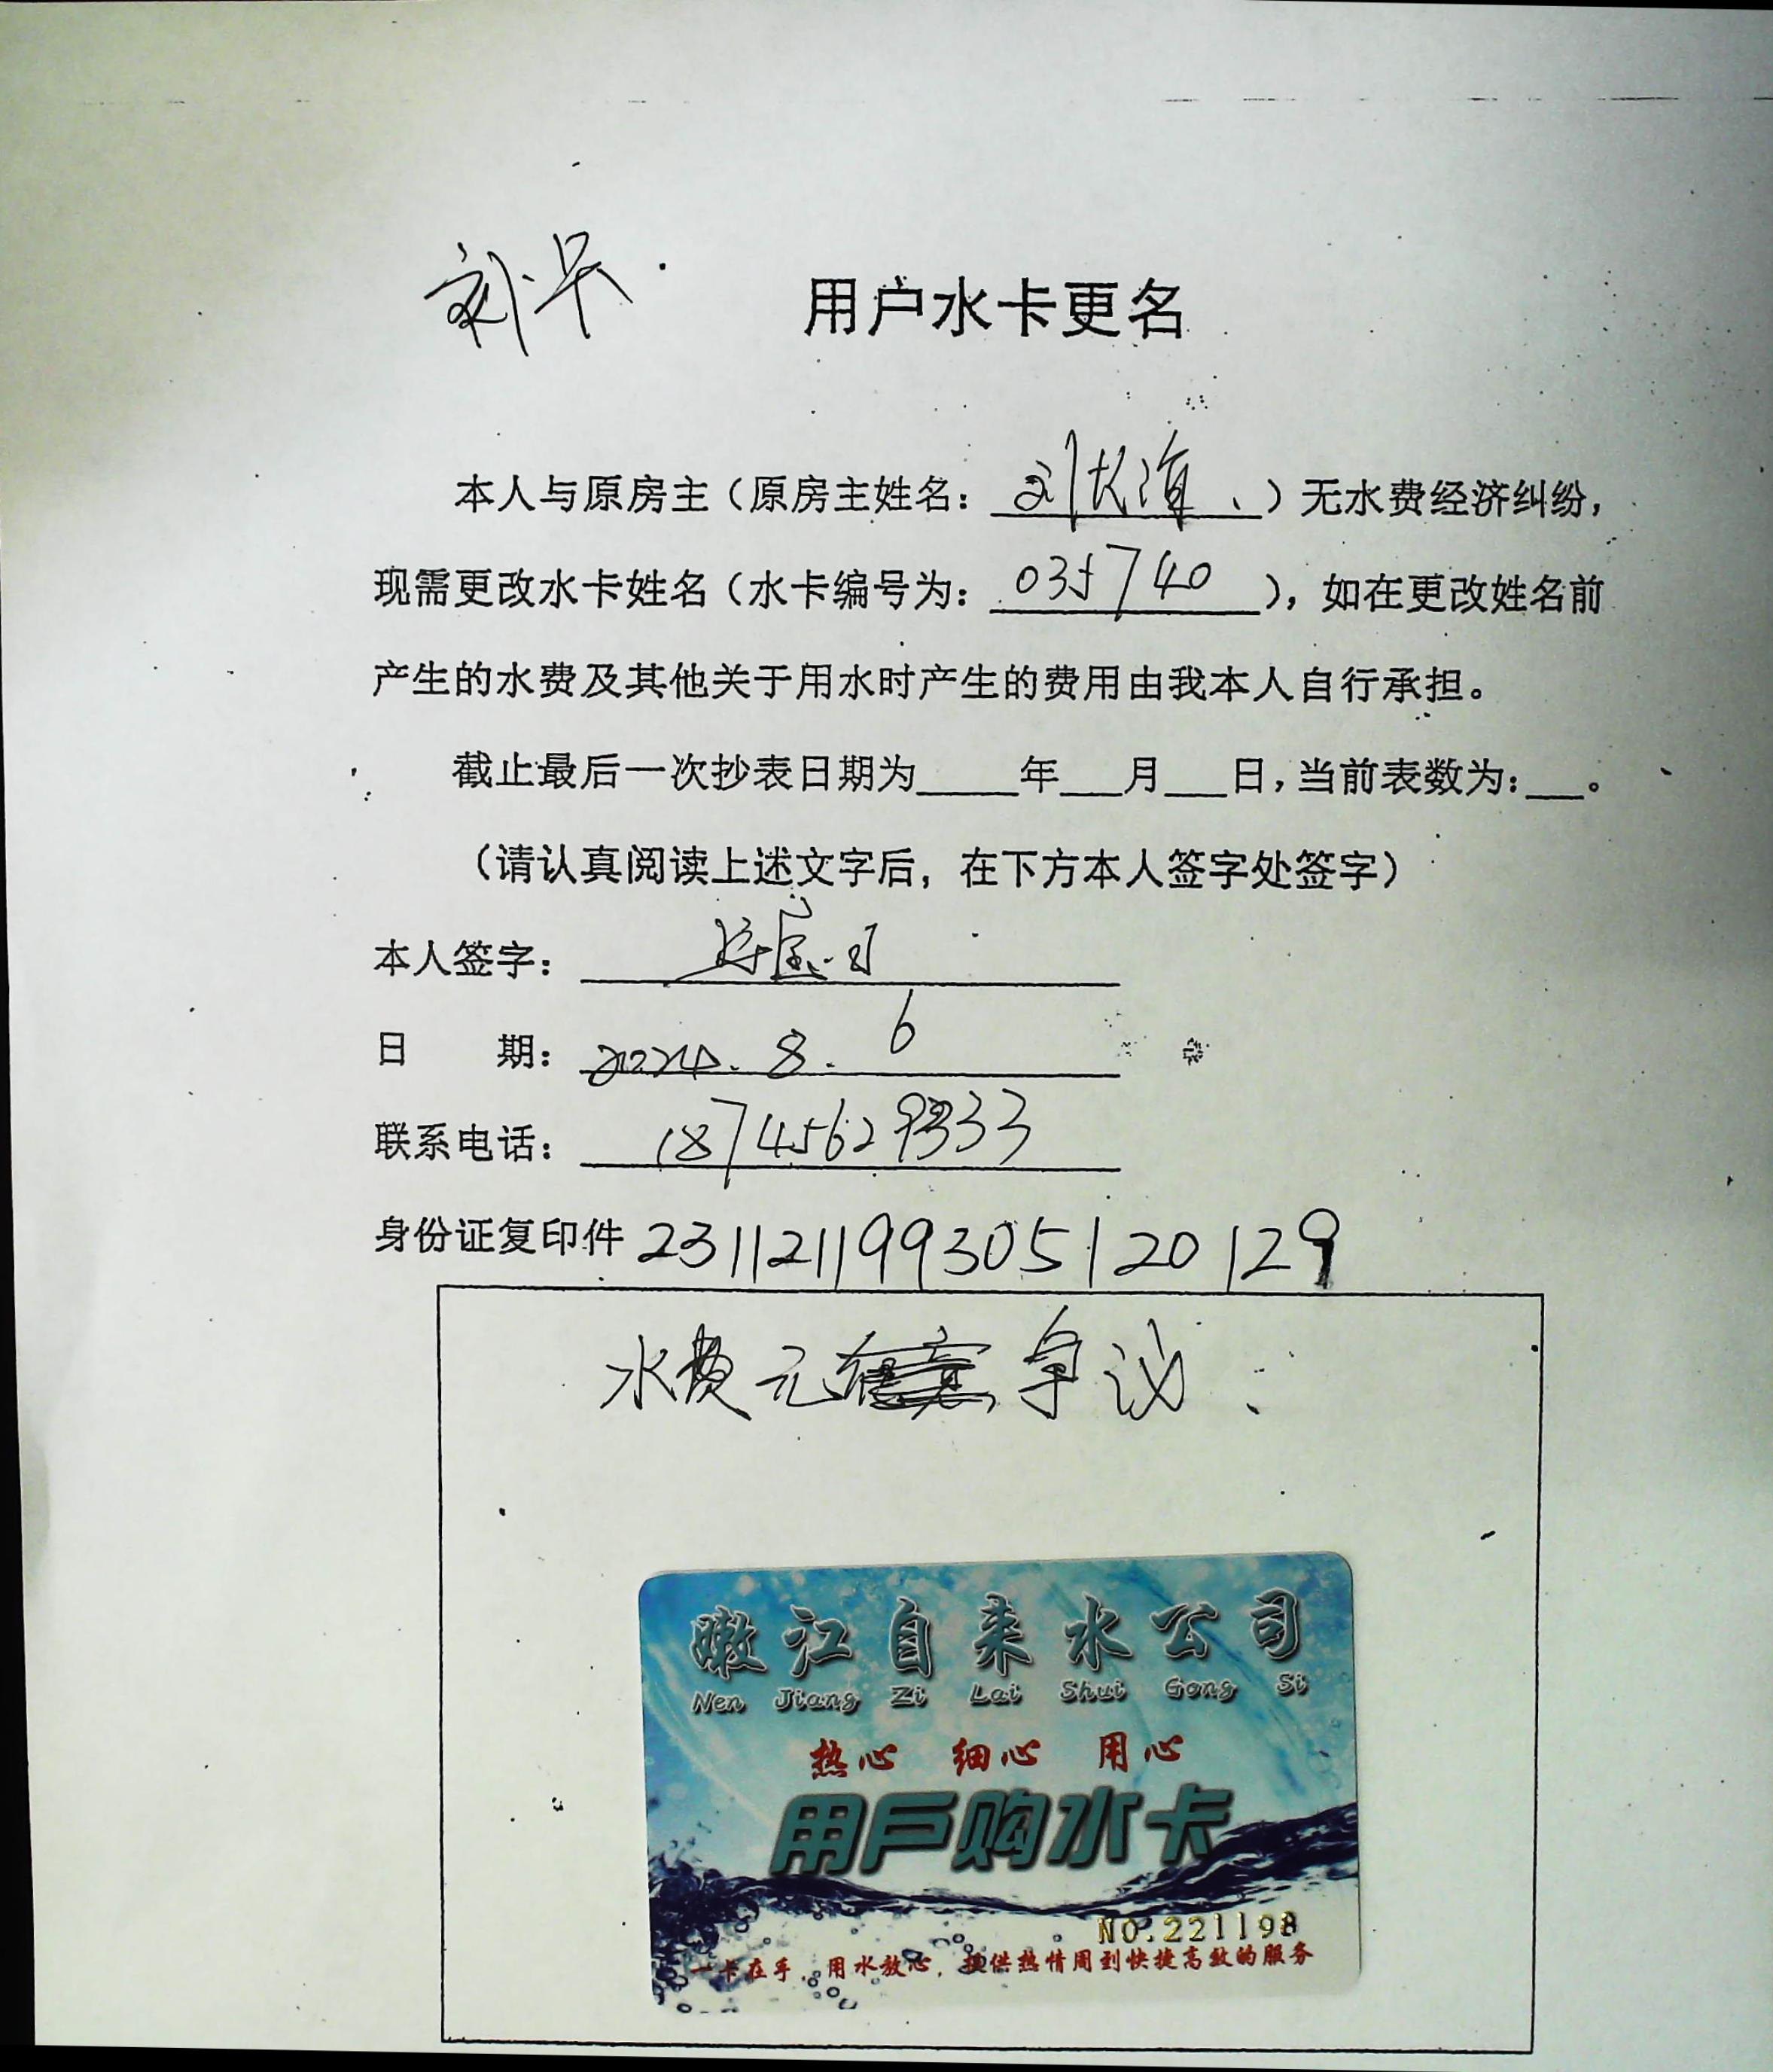 卡
用户水卡更名
本人与原房主（原房主姓名：刘长海）无水费经济纠纷，
现需更改水卡姓名（水卡编号为：035740），如在更改姓名前
产生的水费及其他关于用水时产生的费用由我本人自行承担。
截止最后一次抄表日期为____年___月___日，当前表数为：___。
（请认真阅读上述文字后，在下方本人签字处签字）
本人签字：
日 期：2024.8.6
联系电话：18745629333
身份证复印件 231121199305120129
水费无争议
嫩江自来水公司
Nen Jiang Zi Lai Shui Gong Si
热心 细心 用心
用戶购水卡
NO.221198
一卡在手，用水放心，提供热情周到快捷高效的服务